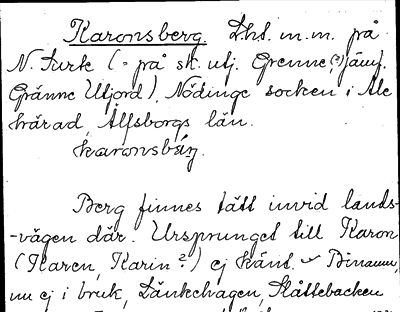 Karonsberg. Lht. m.m. på
N. Surte (= på sk. utj. Grenne, (?) jämf.
Gränne Utjord), Nödinge socken i Ale
härad, Älfsborgs län.
karonsbärj.
Berg finnes tätt invid lands-
-vägen där. Ursprunget till Karon
(Karen, Karin?) ej känt. Binamn,
nu ej i bruk, Länkehagen, Slåttebacken